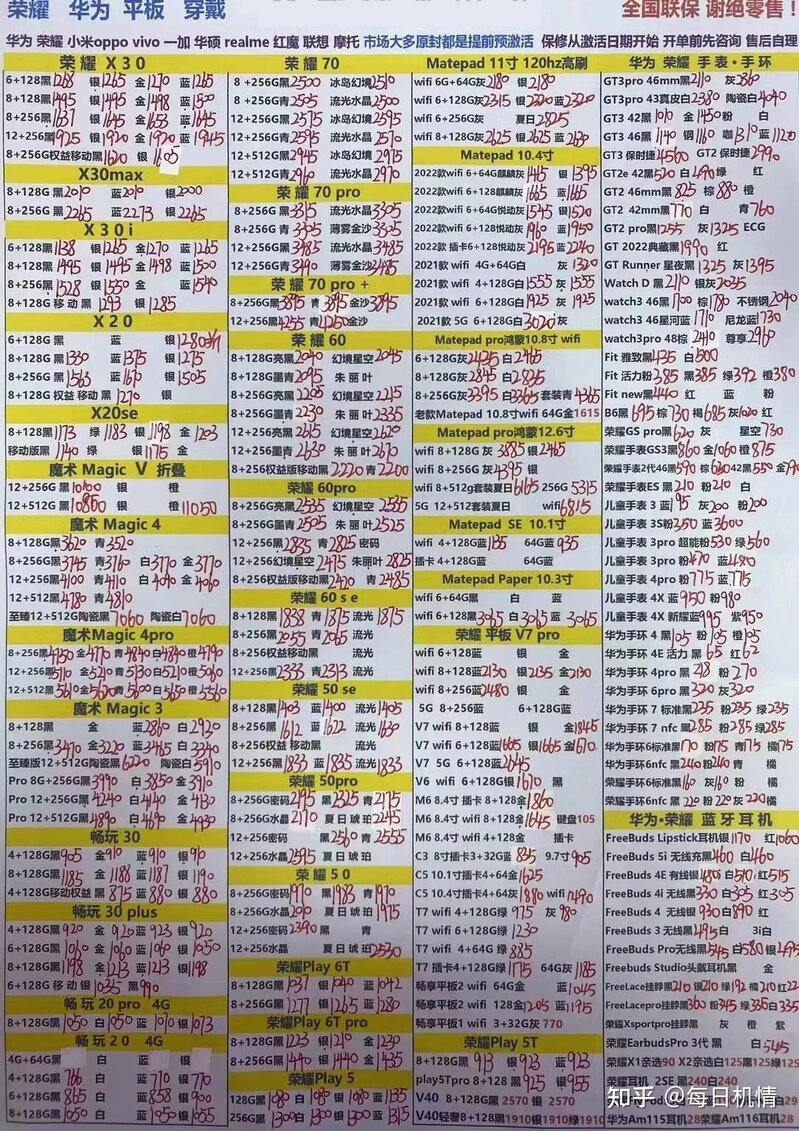 荣耀 华为 平板 穿戴
全国联保 谢绝零售!
华为 荣耀 小米oppo vivo 一加 华硕 realme 红魔 联想 摩托 市场大多原封都是提前预激活 保修从激活日期开始 开单前先咨询 售后自理
荣耀 X30
6+128黑1268 银1265 金1270 蓝1265
8+128黑1495 银1495 金1498 蓝1500
8+256黑1637 银1645 金1653 蓝1645
12+256黑1925 银1920 金1920 蓝1945
8+256G权益移动黑1620 银1605
X30max
8+128G 黑2010 蓝2010 银2000
8+256G 黑2265 蓝2273 银2265
X30i
6+128黑1138 银1265 金1270 蓝1265
8+128黑1495 银1495 金1498 蓝1500
8+256黑1528 银1530 金 蓝1540
8+128G 移动 黑1293 银1285
X20
6+128G 黑 蓝 银1280
8+128G 黑1330 蓝1375 银1275
8+256G 黑1563 蓝1670 银1505
8+128G权益 移动 黑1270 银
X20se
8+128黑1173 绿1183 银1198 金1203
移动版黑1140 绿 银1175 金
魔术 Magic V 折叠
12+256G 黑10100 银 橙
12+512G 黑10800 银 橙11050
魔术 Magic 4
8+128G黑3620 青3520
8+256G黑3745 青3760 白3770 金3770
12+256黑4100 青4110 白4090 金4060
12+512黑4780 青4810
至臻12+512G陶瓷黑7060 陶瓷白7060
魔术Magic 4pro
8+256黑4750 金4770 青4840 白4840 橙4790
12+256黑5110 金5210 青5130 白5210 橙5060
12+512黑5610 金5600 青5600 白5650 橙5560
魔术 Magic 3
8+128G黑 金 蓝2860 白2920
8+256G 黑3470 金3220 蓝3465 白3340
至臻版12+512G陶瓷黑6220 陶瓷白5910
Pro 8G+256G黑3990 白3850 金3910
Pro 12+256G黑4240 白4140 金4130
Pro 12+512G黑4890 白4690 金4930
畅玩 30
4+128G黑905 金910 蓝910 银910
8+128G黑1185 金1188 蓝1187 银1190
4+128G移动权益 黑875 蓝880 银880
畅玩 30 plus
4+128G黑920 金920 蓝923 银920
6+128G黑1060 金1060 蓝1060 银1050
8+128G黑1198 金1213 蓝1213 银1198
6+128G移动 银1035 黑990
畅玩 20 pro 4G
8+128G黑1050 白1050 蓝1070 银1073
畅玩 20 4G
4G+64G黑 白 蓝 银
4+128G黑766 白 蓝710 银770
6+128G黑865 白 蓝858 银900
8+128G黑1050 白 蓝1050 银1055
荣耀 70
8+256G黑2500 冰岛幻境2510
8+256G青2505 流光水晶2500
12+256G黑2575 冰岛幻境2595
12+256G青2595 流光水晶2570
12+512G黑2945 冰岛幻境2975
12+512G青2960 流光水晶2970
荣耀 70 pro
8+256G黑3315 流光水晶3305
8+256G 青3305 薄雾金沙3325
12+256G黑3485 流光水晶3485
12+256G青3490 薄雾金沙2485
荣耀 70 pro +
8+256G黑3895 青3895 金沙3895
12+256黑4255 青4250 金沙
荣耀 60
8+128G亮黑2040 幻境星空2045
8+128G墨青2095 朱丽叶
8+256G亮黑2205 幻境星空2215
8+256G墨青2230 朱丽叶2335
12+256亮黑2615 幻境星空2620
12+256墨青2630 朱丽叶2670
8+256G权益版移动黑2220 青2200
荣耀 60pro
8+256G亮黑2535 幻境星空2535
8+256G墨青2505 朱丽叶2525
12+256黑2835 青2825 密码
12+256G幻境星空2475 朱丽叶2825
8+256G权益版移动黑2420 青2485
荣耀 60 s e
8+128G 黑1838 青1875 流光1875
8+256G 黑2055 青2065 流光
8+256G权益移动黑 流光
12+256G 黑2333 青2313 流光
荣耀 50 se
8+128G 黑1403 蓝1400 流光1405
8+256G 黑1612 蓝1622 流光1630
8+256G权益 移动黑 流光
12+256G 黑1833 蓝1835 流光1833
荣耀 50pro
8+256G密码2195 黑2325 青2175
8+256G水晶2170 夏日琥珀2245
12+256密码 黑2560 青2555
12+256水晶2595 夏日琥珀
荣耀 50
8+256G密码1970 黑1983 青1970
8+256G水晶2010 夏日琥珀1975
12+256密码2390 黑 青
12+256G水晶 夏日琥珀2530
荣耀Play 6T
8+128G黑1037 银1040 蓝1042
8+256G黑1277 银1265 蓝1280
荣耀Play 6T pro
8+128G黑1223 银1210 金1230
8+256G黑1440 银1440 金1435
荣耀Play 5
8+128G黑1080 白1080 银1080 蓝1135
256G黑1300 白1300 银1300 蓝1315
Matepad 11寸 120hz高刷
wifi 6G+64G灰2180 银2180
wifi 6+128G灰2315 银2220 蓝2320
wifi 6+256G灰 夏日2825
wifi 8+128G灰2625 银2625 蓝2630
Matepad 10.4寸
2022款wifi 6+64G麒麟灰1415 银1395
2022款wifi 6+128麒麟灰1665 蓝1665
2022款wifi 6+64G悦动灰1545 银1520
2022款wifi 6+128悦动灰1960 蓝1950
2022款 插卡6+128悦动灰2195 蓝2240
2021款wifi 4G+64G白 灰1320
2021款 wifi 4+128G白1555 灰1555
2021款 wifi 6+128G白1925 灰1925
2021款 5G 6+128G白3020 灰
Matepad pro鸿蒙10.8寸 wifi
6+128G灰2435 白2465
8+128G灰2845 白2835
8+256G灰3395 白3365 套装青4365
老款Matepad 10.8寸wifi 64G金1615
Matepad pro鸿蒙12.6寸
wifi 8+128G 灰3885 银2465
wifi 8+256G 灰4395 银
wifi 8+512g套装夏日6165 256G 5315
5G 12+512套装夏日 wifi6815
Matepad SE 10.1寸
wifi 4+128G蓝1135 64G蓝935
插卡 4+128G蓝 64G蓝
Matepad Paper 10.3寸
wifi 6+64G黑 白 蓝
wifi 6+128黑3065 白3065 蓝3065
荣耀 平板 V7 pro
wifi 6+128蓝 银 金
wifi 8+128蓝2130 银2135 金2130
wifi 8+256蓝2480 银 金
5G 8+256蓝 6+128G蓝
V7 wifi 8+128蓝 银 金1845
V7 wifi 6+128蓝1665 银1665 金1670
V7 5G 6+128蓝2645
V6 wifi 6+128G银1670 黑
M6 8.4寸 插卡 8+128金1860
M6 8.4寸 wifi 8+128金1645 键盘105
M6 8.4寸 wifi 4+128金 插卡
C3 8寸插卡3+32G蓝835 9.7寸905
C5 10.1寸插卡4+64金1625
C5 10.4寸插卡4+64灰1880 wifi1490
T7 wifi 4+128G绿975 灰980
T7 wifi 6+128G绿1230
T7 wifi 4+64G 绿885
T7 插卡4+128G绿1175 64G灰1185
畅享平板2 wifi 64G金 蓝1045
畅享平板2 wifi 128金1205 蓝1195
畅享平板1 wifi 3+32G灰 770
荣耀Play 5T
8+128G黑913 银923 蓝923
play5Tpro 8+128 黑925 银955
V40 8+128G黑 2570 银2570
V40轻奢8+128G黑1910银1910绿1910
华为 荣耀 手表·手环
GT3pro 46mm黑2110 灰2360
GT3pro 43真皮白2380 陶瓷白4040
GT3 42黑1010 金1450 粉白
GT3 46黑1140 钢1160 咖1310 蓝1120
GT3 保时捷4560 GT2 保时捷2990
GT2e 42黑520 白490 绿 红
GT2 46mm黑825 棕880 橙
GT2 42mm黑770 白 青760
GT2 pro黑1255 灰1325 ECG
GT 2022典藏黑1990 红
GT Runner 星夜黑1325 灰1395
Watch D 黑2110 银灰2035
watch3 46黑1700 棕1780 不锈钢2040
watch3 46星河蓝1710 尼龙蓝1730
watch3pro 48棕2410 尊享2960
Fit 雅致黑435 白500
Fit 活力粉385 黑385 绿392 橙380
Fit new黑440 红 蓝
B6黑695 棕730 褐685 灰1020 红
荣耀GS pro黑620 灰 星空730
荣耀手表GS3黑860 金1060 橙875
荣耀手表2代46黑590 棕620 42黑550 金790
荣耀手表ES 黑210 粉210 白
儿童手表 3 蓝95 灰200 粉200
儿童手表 3S粉350 蓝3600
儿童手表 3pro 超能粉530 绿560
儿童手表 3pro 粉470 蓝480
儿童手表 4pro 粉775 蓝775
儿童手表 4X 蓝950 粉980
儿童手表 4X 新耀蓝995 紫950
华为手环 4 黑105 粉105 橙105
华为手环 4E 活力 黑65 红62
华为手环 4pro 黑218 粉270
华为手环 6pro 黑320 灰320
华为手环 7 标准黑235 粉235 绿235
华为手环 7 nfc 黑285 粉285 绿285
华为手环6标准黑170 粉175 青175 橘175
华为手环6nfc 黑240 粉240 青 橘
荣耀手环6标准黑160 灰160 粉 橘
荣耀手环6nfc 黑220 粉220 灰220 橘
华为·荣耀 蓝牙耳机
FreeBuds Lipstick耳机银1170 红1060
FreeBuds 5i 无线充黑460 白460
FreeBuds 4E 有线银480 白510 红515
FreeBuds 4i 无线黑330 白305 红305
FreeBuds 4 无线 银930 白890 红
FreeBuds 3 无线 黑495 白 3i白
FreeBuds Pro无线黑545 白580 银495
Freebuds Studio头戴耳机黑 金
FreeLace挂脖黑210 银210 绿192 橘210 红22
FreeLacepro挂脖黑360 粉345 绿336 白335
荣耀Xsportpro挂脖黑 灰 橙 紫
荣耀EarbudsPro 3代 黑 白545
荣耀X1亲选90 X2亲选白125黑125绿125
荣耀耳机 2SE 黑240白240
华为Am115耳机28荣耀Am116耳机28
知乎 @每日机情